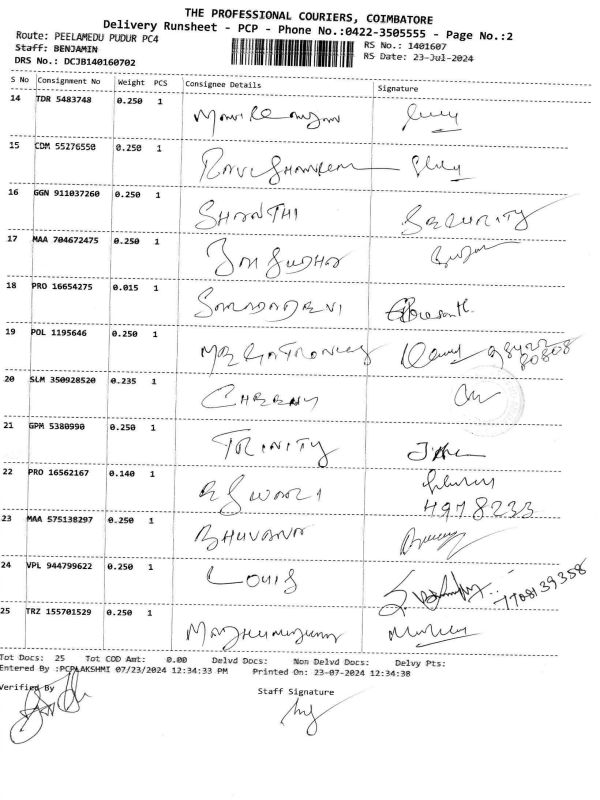 THE PROFESSIONAL COURIERS, COIMBATORE
Delivery Runsheet - PCP - Phone No.:0422-3505555 - Page No.:2
Route: PEELAMEDU PUDUR PC4
RS No.: 1401607
Staff: BENJAMIN
RS Date: 23-Jul-2024
DRS No.: DCJB140160702
S No Consignment No Weight PCS Consignee Details Signature
14 TDR 5483748 0.250 1
15 CDM 55276550 0.250 1 RAVISHANKAR
16 GGN 911037260 0.250 1 SHANTHI SECURITY
17 MAA 704672475 0.250 1
18 PRO 16654275 0.015 1 SARADADEVI
19 POL 1195646 0.250 1 98422
80808
20 SLM 350928520 0.235 1 CHERRY
21 GPM 5380990 0.250 1 TRINITY
22 PRO 16562167 0.140 1 ESWARI
4978233
23 MAA 575138297 0.250 1 BHUVANA
24 VPL 944799622 0.250 1 LOUIS 7708139358
25 TRZ 155701529 0.250 1
Tot Docs: 25 Tot COD Amt: 0.00 Delvd Docs: Non Delvd Docs: Delvy Pts:
Entered By :PCPLAKSHMI 07/23/2024 12:34:33 PM Printed On: 23-07-2024 12:34:38
Verified By
Staff Signature